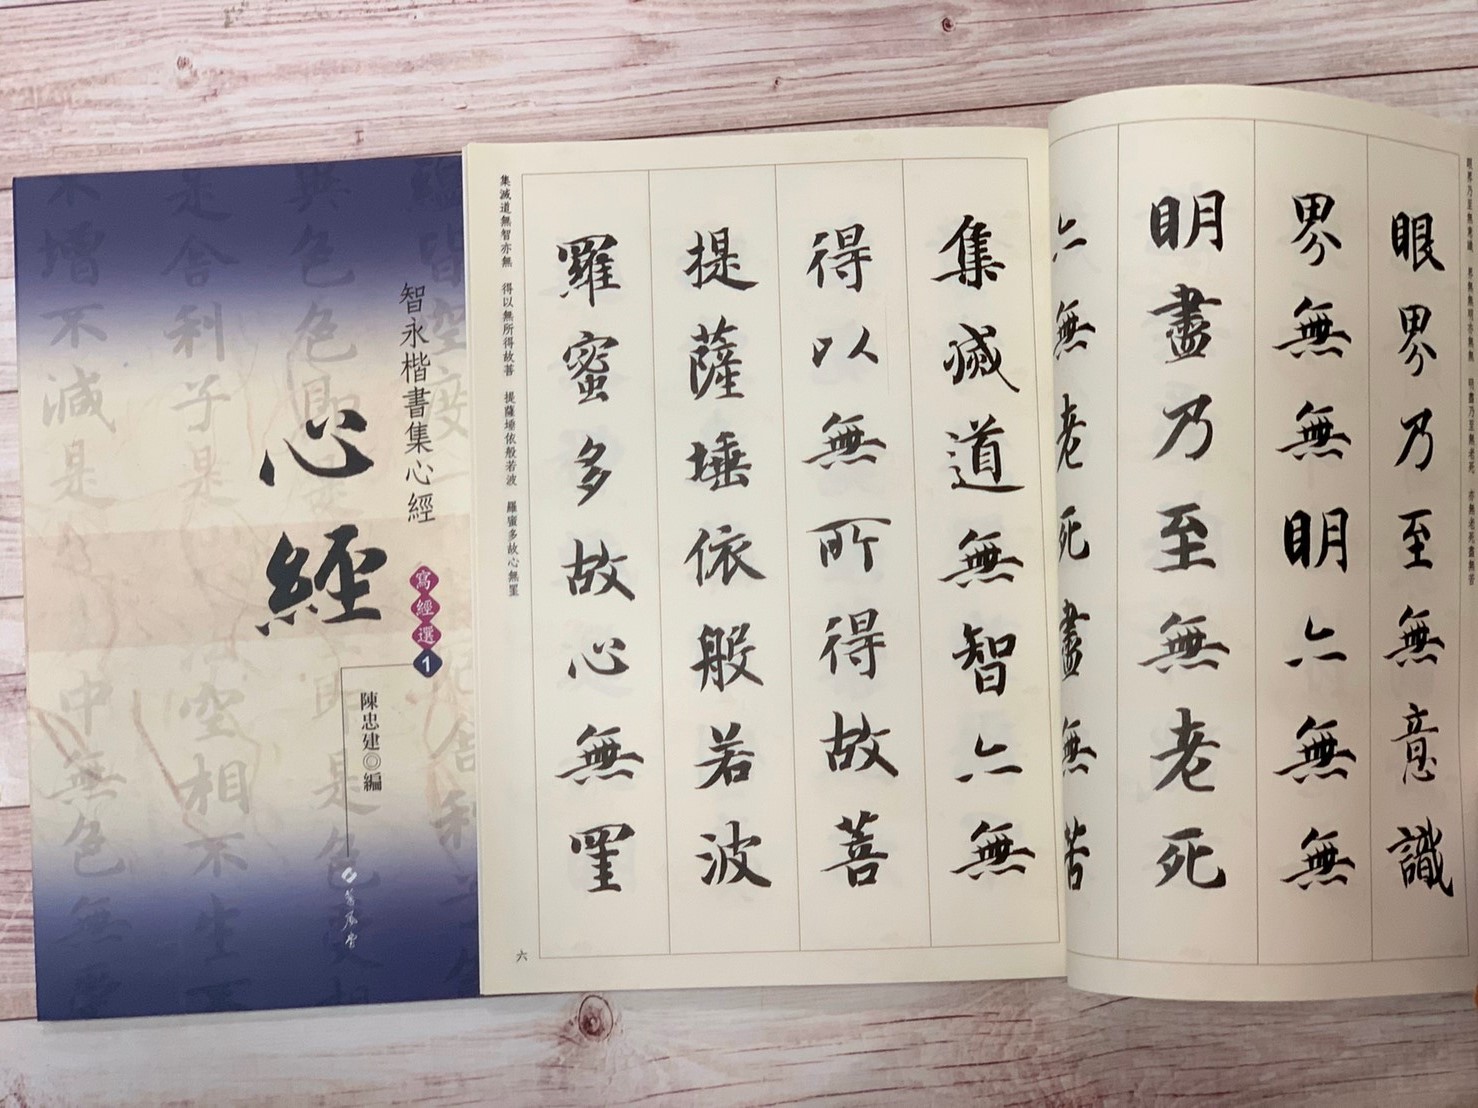 智永楷書集心經
心經
寫經選1
陳忠建◎編
蕙風堂
眼界乃至無意識 界無無明亦無無 明盡乃至無老死 亦無老死盡無苦
眼界乃至無意識
界無無明亦無無
明盡乃至無老死
亦無老死盡無苦
集滅道無智亦無
得以無所得故菩
提薩埵依般若波
羅蜜多故心無罣
集滅道無智亦無 得以無所得故菩 提薩埵依般若波 羅蜜多故心無罣
六